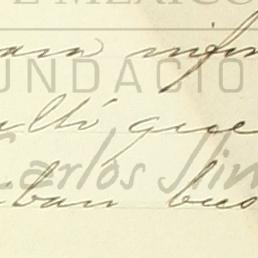 E MÉXICO
ara infor
FUNDACIÓ
ultó que
Carlos Slim
iban bus